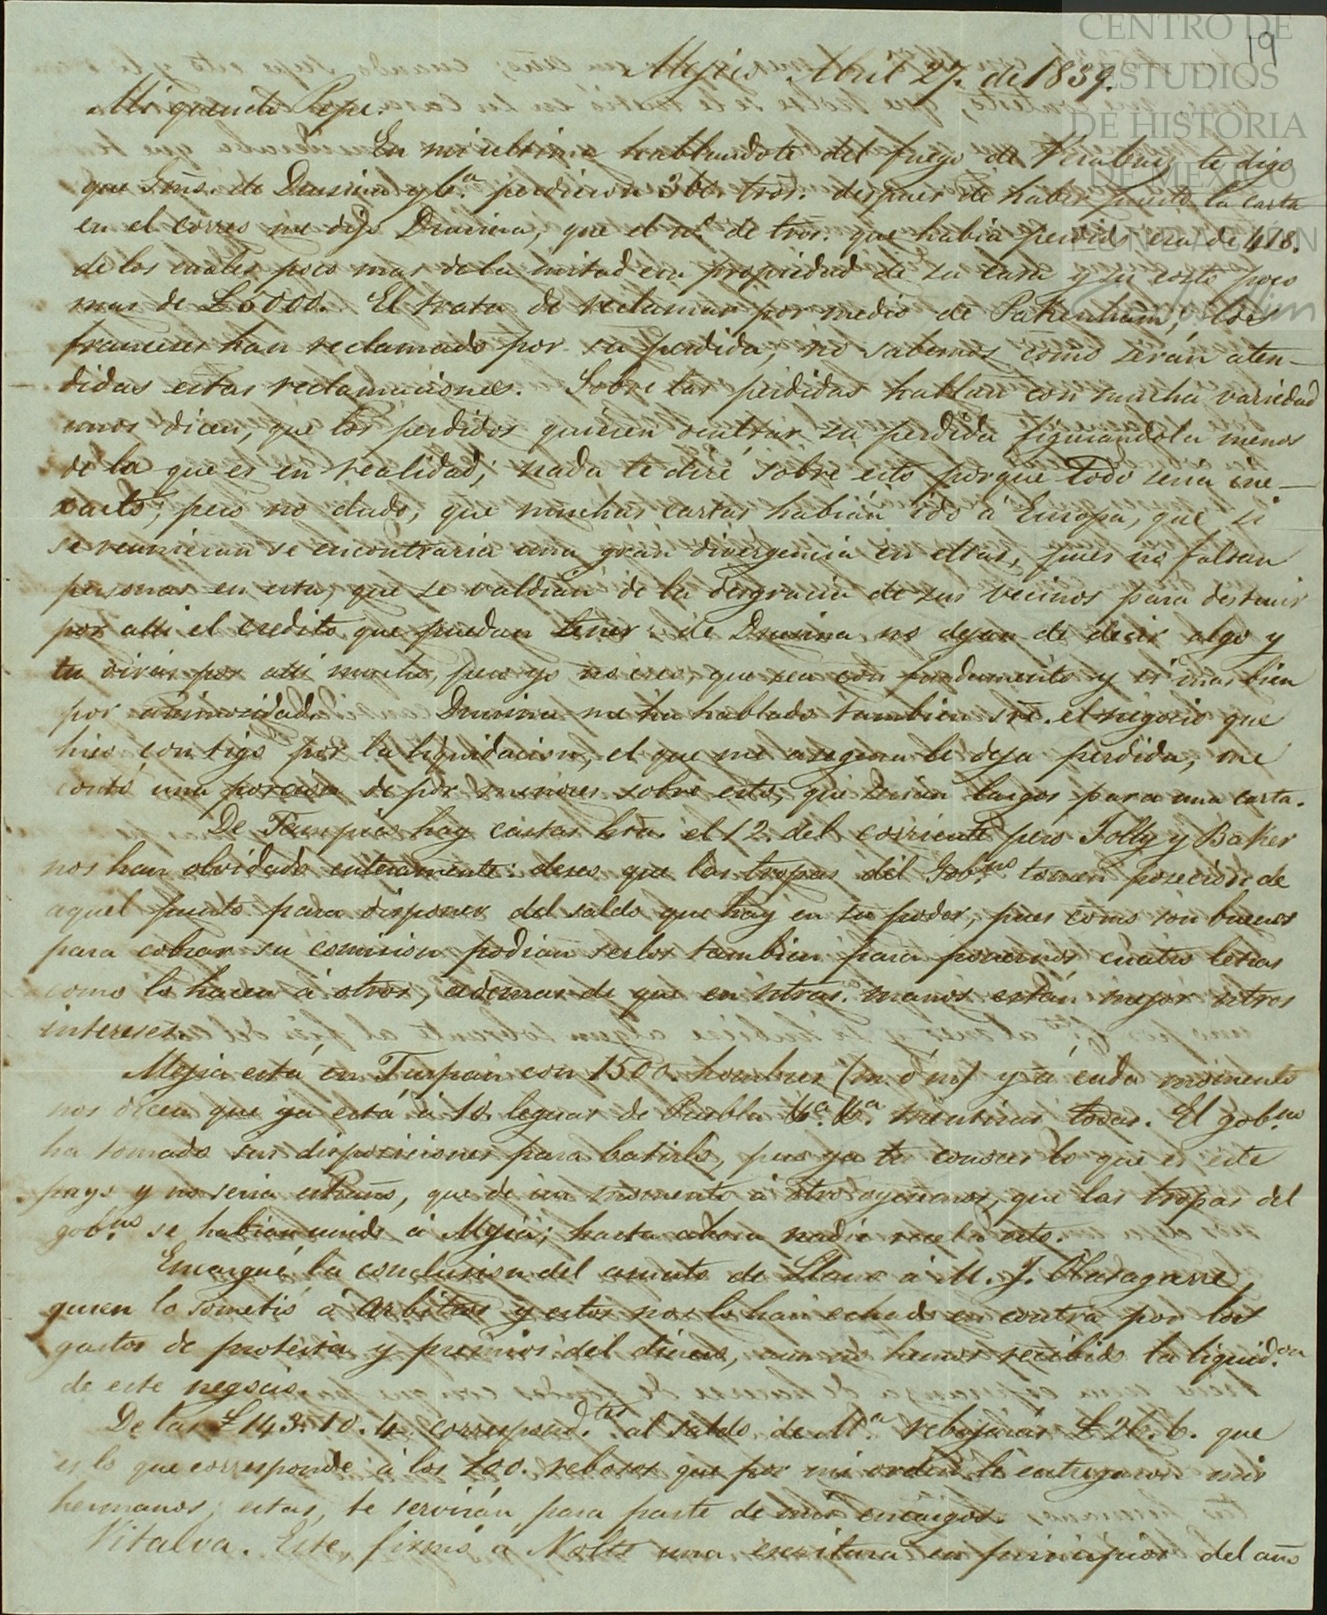 CENTRO DE
ESTUDIOS
DE HISTORIA
DE MÉXICO
FUNDACIÓN
19
Mejico Abril 27. de 1839.
Mi querido Pepe.
En mi ultima hablandote del fuego de VeraCruz te digo
que Sres. de Drusina y Ca. perdieron 360. tros. despues de haber puesto la carta
en el correo me dijo Drusina, que el no. de tros. que habia perdido era de 418.
de los cuales poco mas de la mitad era propiedad de su casa y su costo poco
mas de £6000. El trata de reclamar por medio de Pakenham; los
franceses han reclamado por su perdida, no sabemos como serán aten-
didas estas reclamaciones. Sobre las perdidas hablan con mucha variedad
unos dicen, que los perdidos quieren ocultar su perdida figurandola menos
de la que es en realidad; nada te diré sobre esto porque todo seria ine-
xacto; pero no dudo, que muchas cartas habrán ido á Europa, que si
se reunieran se encontraria una gran divergencia en ellas, pues no faltan
personas en esta, que se valdrán de la desgracia de sus vecinos para destruir
por alli el credito que puedan tener: de Drusina no dejan de decir algo y
tu oirás por alli mucho, pero yo no creo, que sea con fundamento y si mas bien
por animosidad. Drusina me ha hablado tambien sre. el negocio que
hizo contigo por la liquidacion, el que me asegura le deja perdida, me
contó una porcion de por menores sobre esto, que serian largos para una carta.
De Tampico hay cartas hta. el 12. del corriente pero Jolly y Baker
nos han olvidado enteramente: deseo que las tropas del Gobno. tomen posecion de
aquel punto para disponer del saldo que hay en su poder, pues como son buenos
para cobrar su comision podian serlo tambien para ponernos cuatro letras
como lo hacen á otros, ademas de que en ntras. manos están mejor ntros
intereses.
Mejia está en Tuxpan con 1500. hombres (m ó m) y á cada momento
nos dicen que ya está á 10. leguas de Puebla &a. &a. mentiras todas. El gobno.
ha tomado sus disposiciones para batirlo, pero ya tu conoces lo que es este
pays y no seria estraño, que de un momento á otro oyeramos, que las tropas del
gobno. se habian unido á Mejia; hasta ahora nadie recela esto.
Encargué la conclusion del asunto de Llano á M. J. Olasagarre,
quien lo sometió á arbitros y estos nos lo han echado en contra por los
gastos de protesta y premios del dinero, aun no hemos recibido la liquidon.
de este negocio.
De las £143.10.4. correspondtes. al saldo de Ma. rebajarás £26.6. que
es lo que corresponde á los 100. rebosos que por mi orden le entregaron mis
hermanos; estas te servirán para parte de mis encargos.
Vitalva. Este, firmó á Nolte una escritura en principios del año